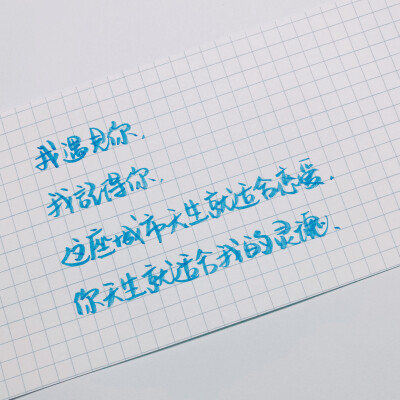 我遇见你、
我记得你、
这座城市天生就适合恋爱、
你天生就适合我的灵魂、